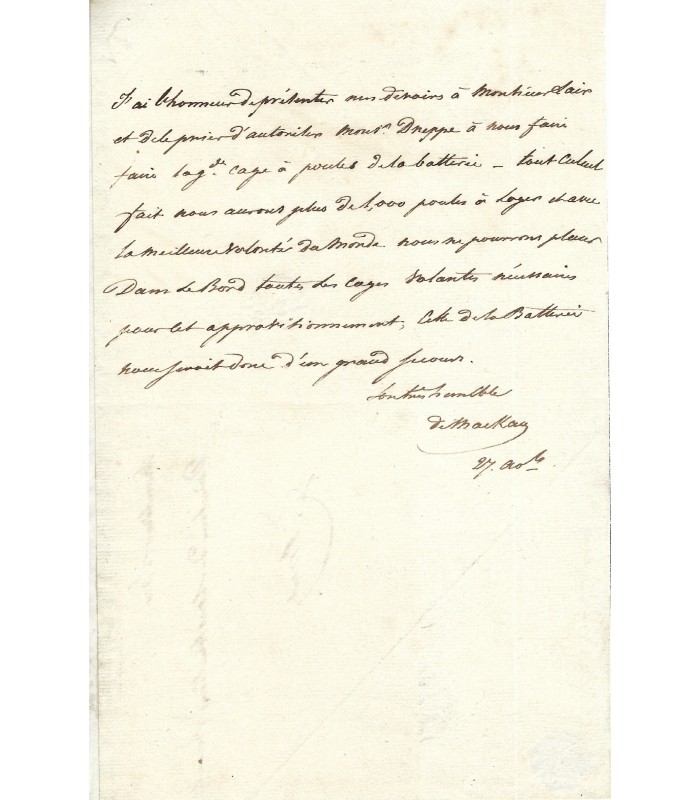 J'ai l'honneur de présenter mes devoirs à Monsieur Lair
et de le prier d'autoriser Mons.r Dreppe à nous faire
faire la g.de cage à poules de la batterie – tout calcul
fait nous aurons plus de 1,000 poules à loger et avec
la meilleure volonté du Monde nous ne pourrons placer
Dans le Bord toutes les cages volantes nécessaires
pour cet approvisionnement; Celle de la Batterie
nous seroit donc d'un grand secours.
Son très humble
de Mackau
27.